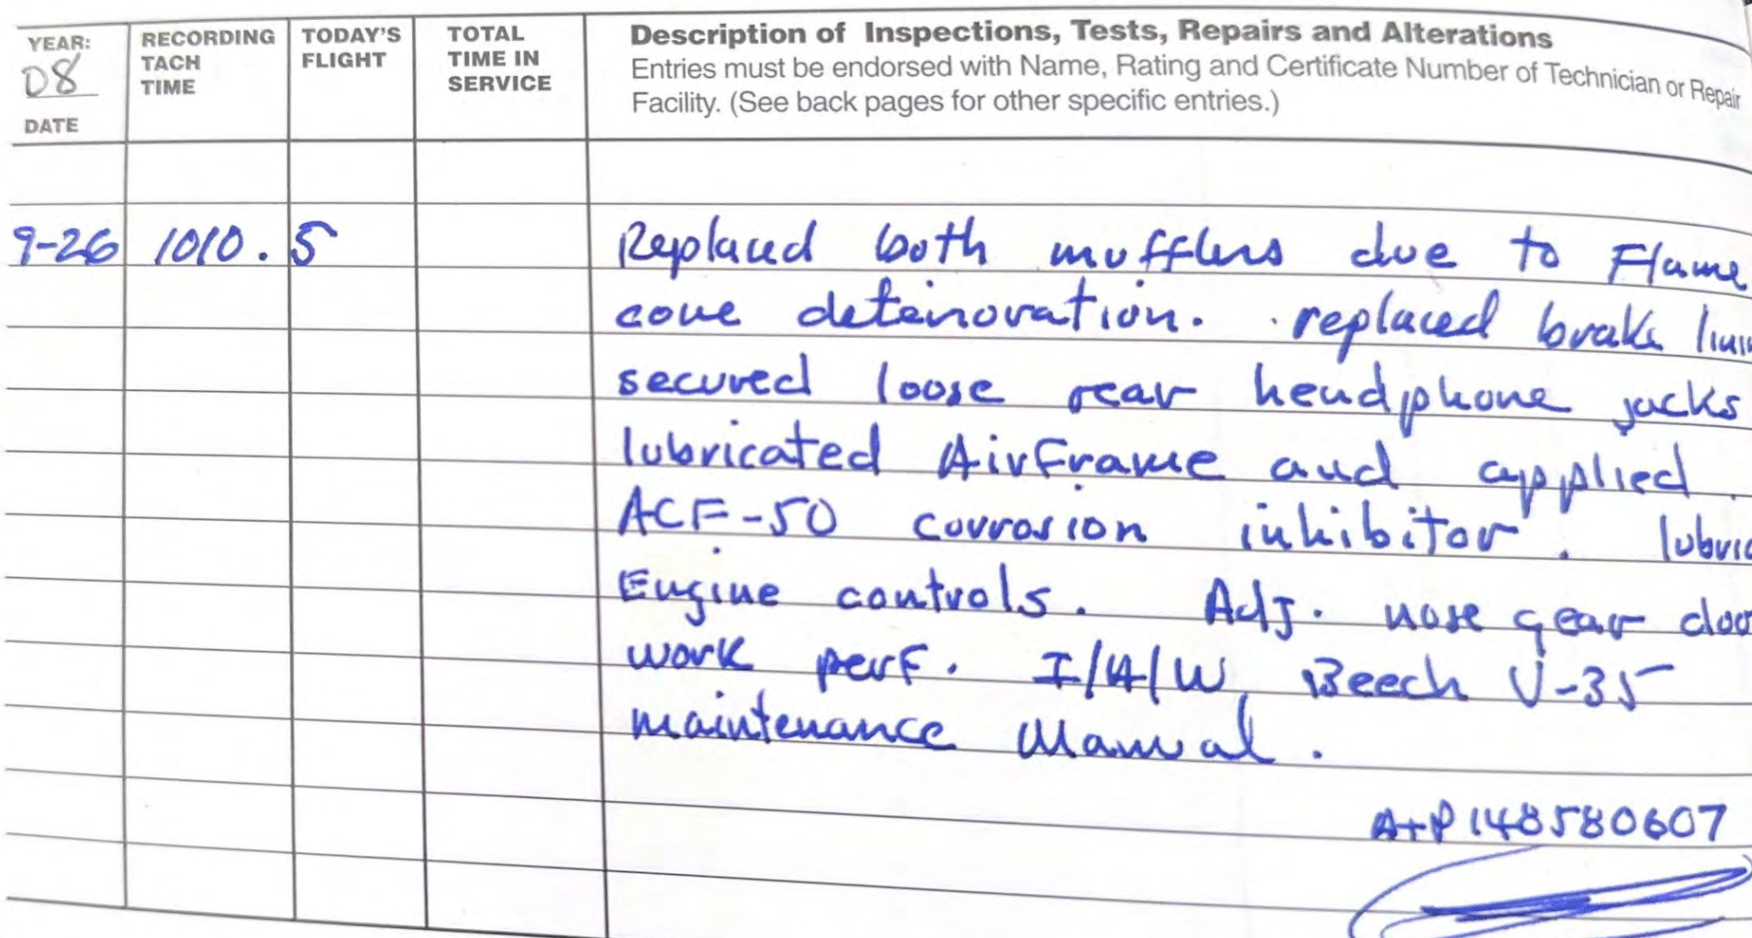 YEAR:
08
DATE
RECORDING
TACH
TIME
TODAY'S
FLIGHT
TOTAL
TIME IN
SERVICE
Description of Inspections, Tests, Repairs and Alterations
Entries must be endorsed with Name, Rating and Certificate Number of Technician or Repair
Facility. (See back pages for other specific entries.)
9-26 1010.5 Replaced both mufflers due to Flame
cone deteriovation. replaced brake
secured loose rear headphone jacks
lubricated AirFrame and applied
ACF-50 corrosion inhibitor. lubric
Engine controls. Adj. nose gear doo
work perf. I/A/W, Beech V-35
maintenance Manual.
A+P 148580607